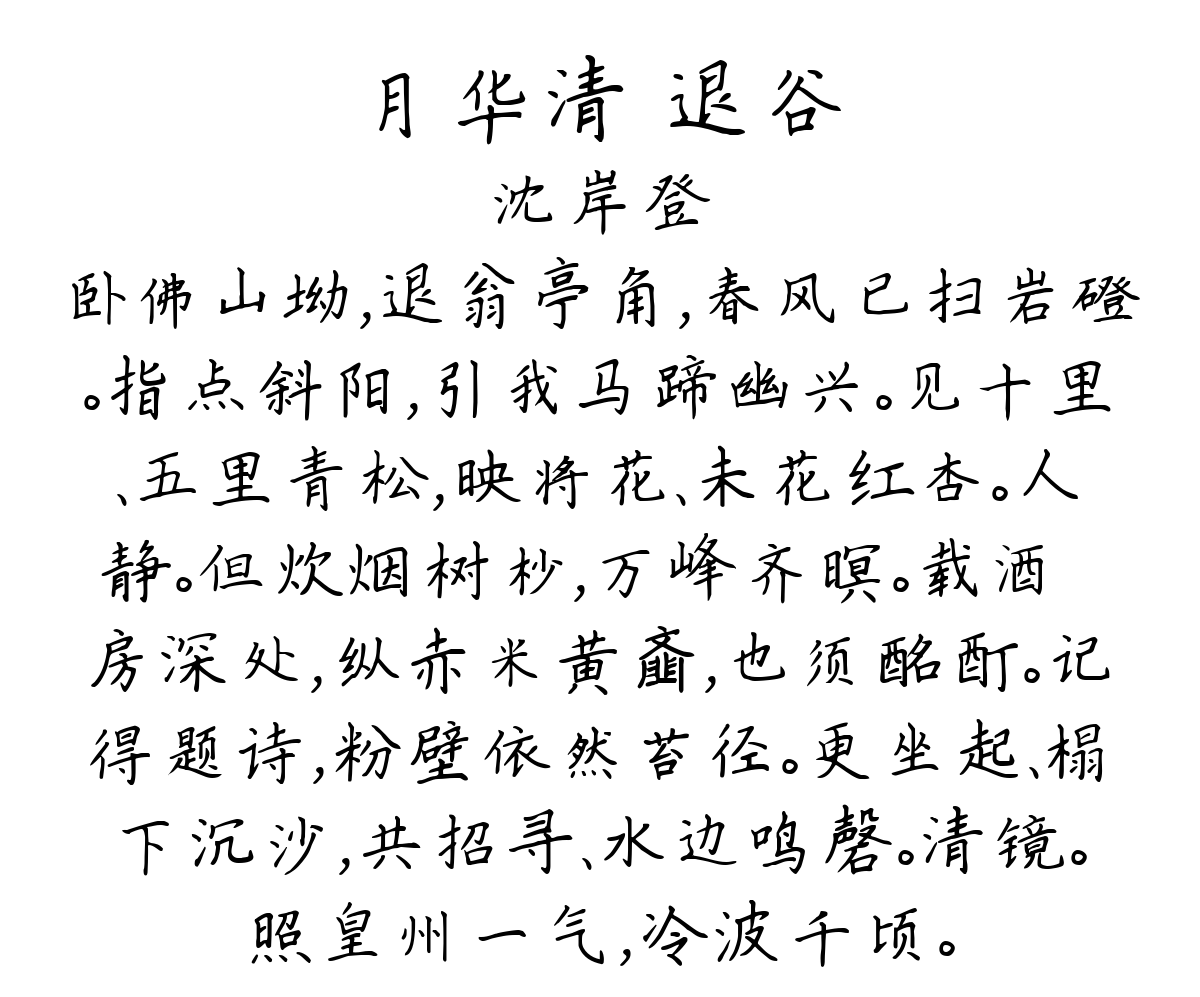 月华清 退谷
沈岸登
卧佛山坳,退翁亭角,春风已扫岩磴
。指点斜阳,引我马蹄幽兴。见十里
、五里青松,映将花、未花红杏。人
静。但炊烟树杪,万峰齐暝。载酒
房深处,纵赤米黄齑,也须酩酊。记
得题诗,粉壁依然苔径。更坐起、榻
下沉沙,共招寻、水边鸣磬。清镜。
照皇州一气,冷波千顷。